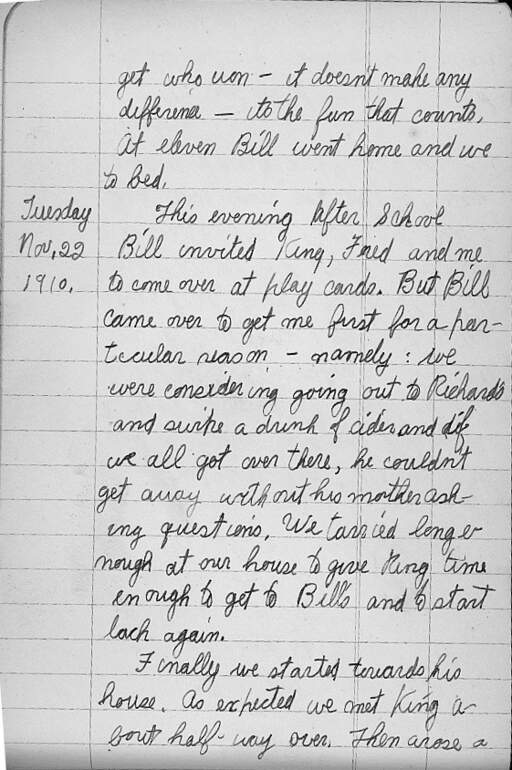 get who won – it doesn't make any
difference – its the fun that counts.
At eleven Bill went home and we
to bed.
Tuesday
Nov. 22
1910.
This evening after school
Bill invited King, Fred and me
to come over at play cards. But Bill
came over to get me first for a par-
ticular reason – namely : we
were considering going out to Richards
and swipe a drink of cider and if
we all got over there, he couldn't
get away without his mother ask-
ing questions. We tarried longe
nough at our house to give King time
enough to get to Bill's and to start
back again.
Finally we started towards his
house. As expected we met King a-
bout half-way over. Then arose a